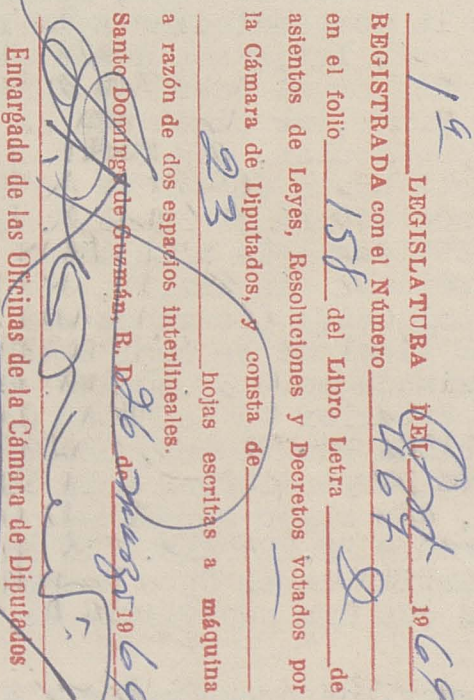 1ª LEGISLATURA DEL Ord. 1969
REGISTRADA con el Número 467
en el folio 158 del Libro Letra D de
asientos de Leyes, Resoluciones y Decretos votados por
la Cámara de Diputados, y consta de
23 hojas escritas a máquina
a razón de dos espacios interlineales.
Santo Domingo de Guzmán, R. D. 26 de marzo 1969
Encargado de las Oficinas de la Cámara de Diputados